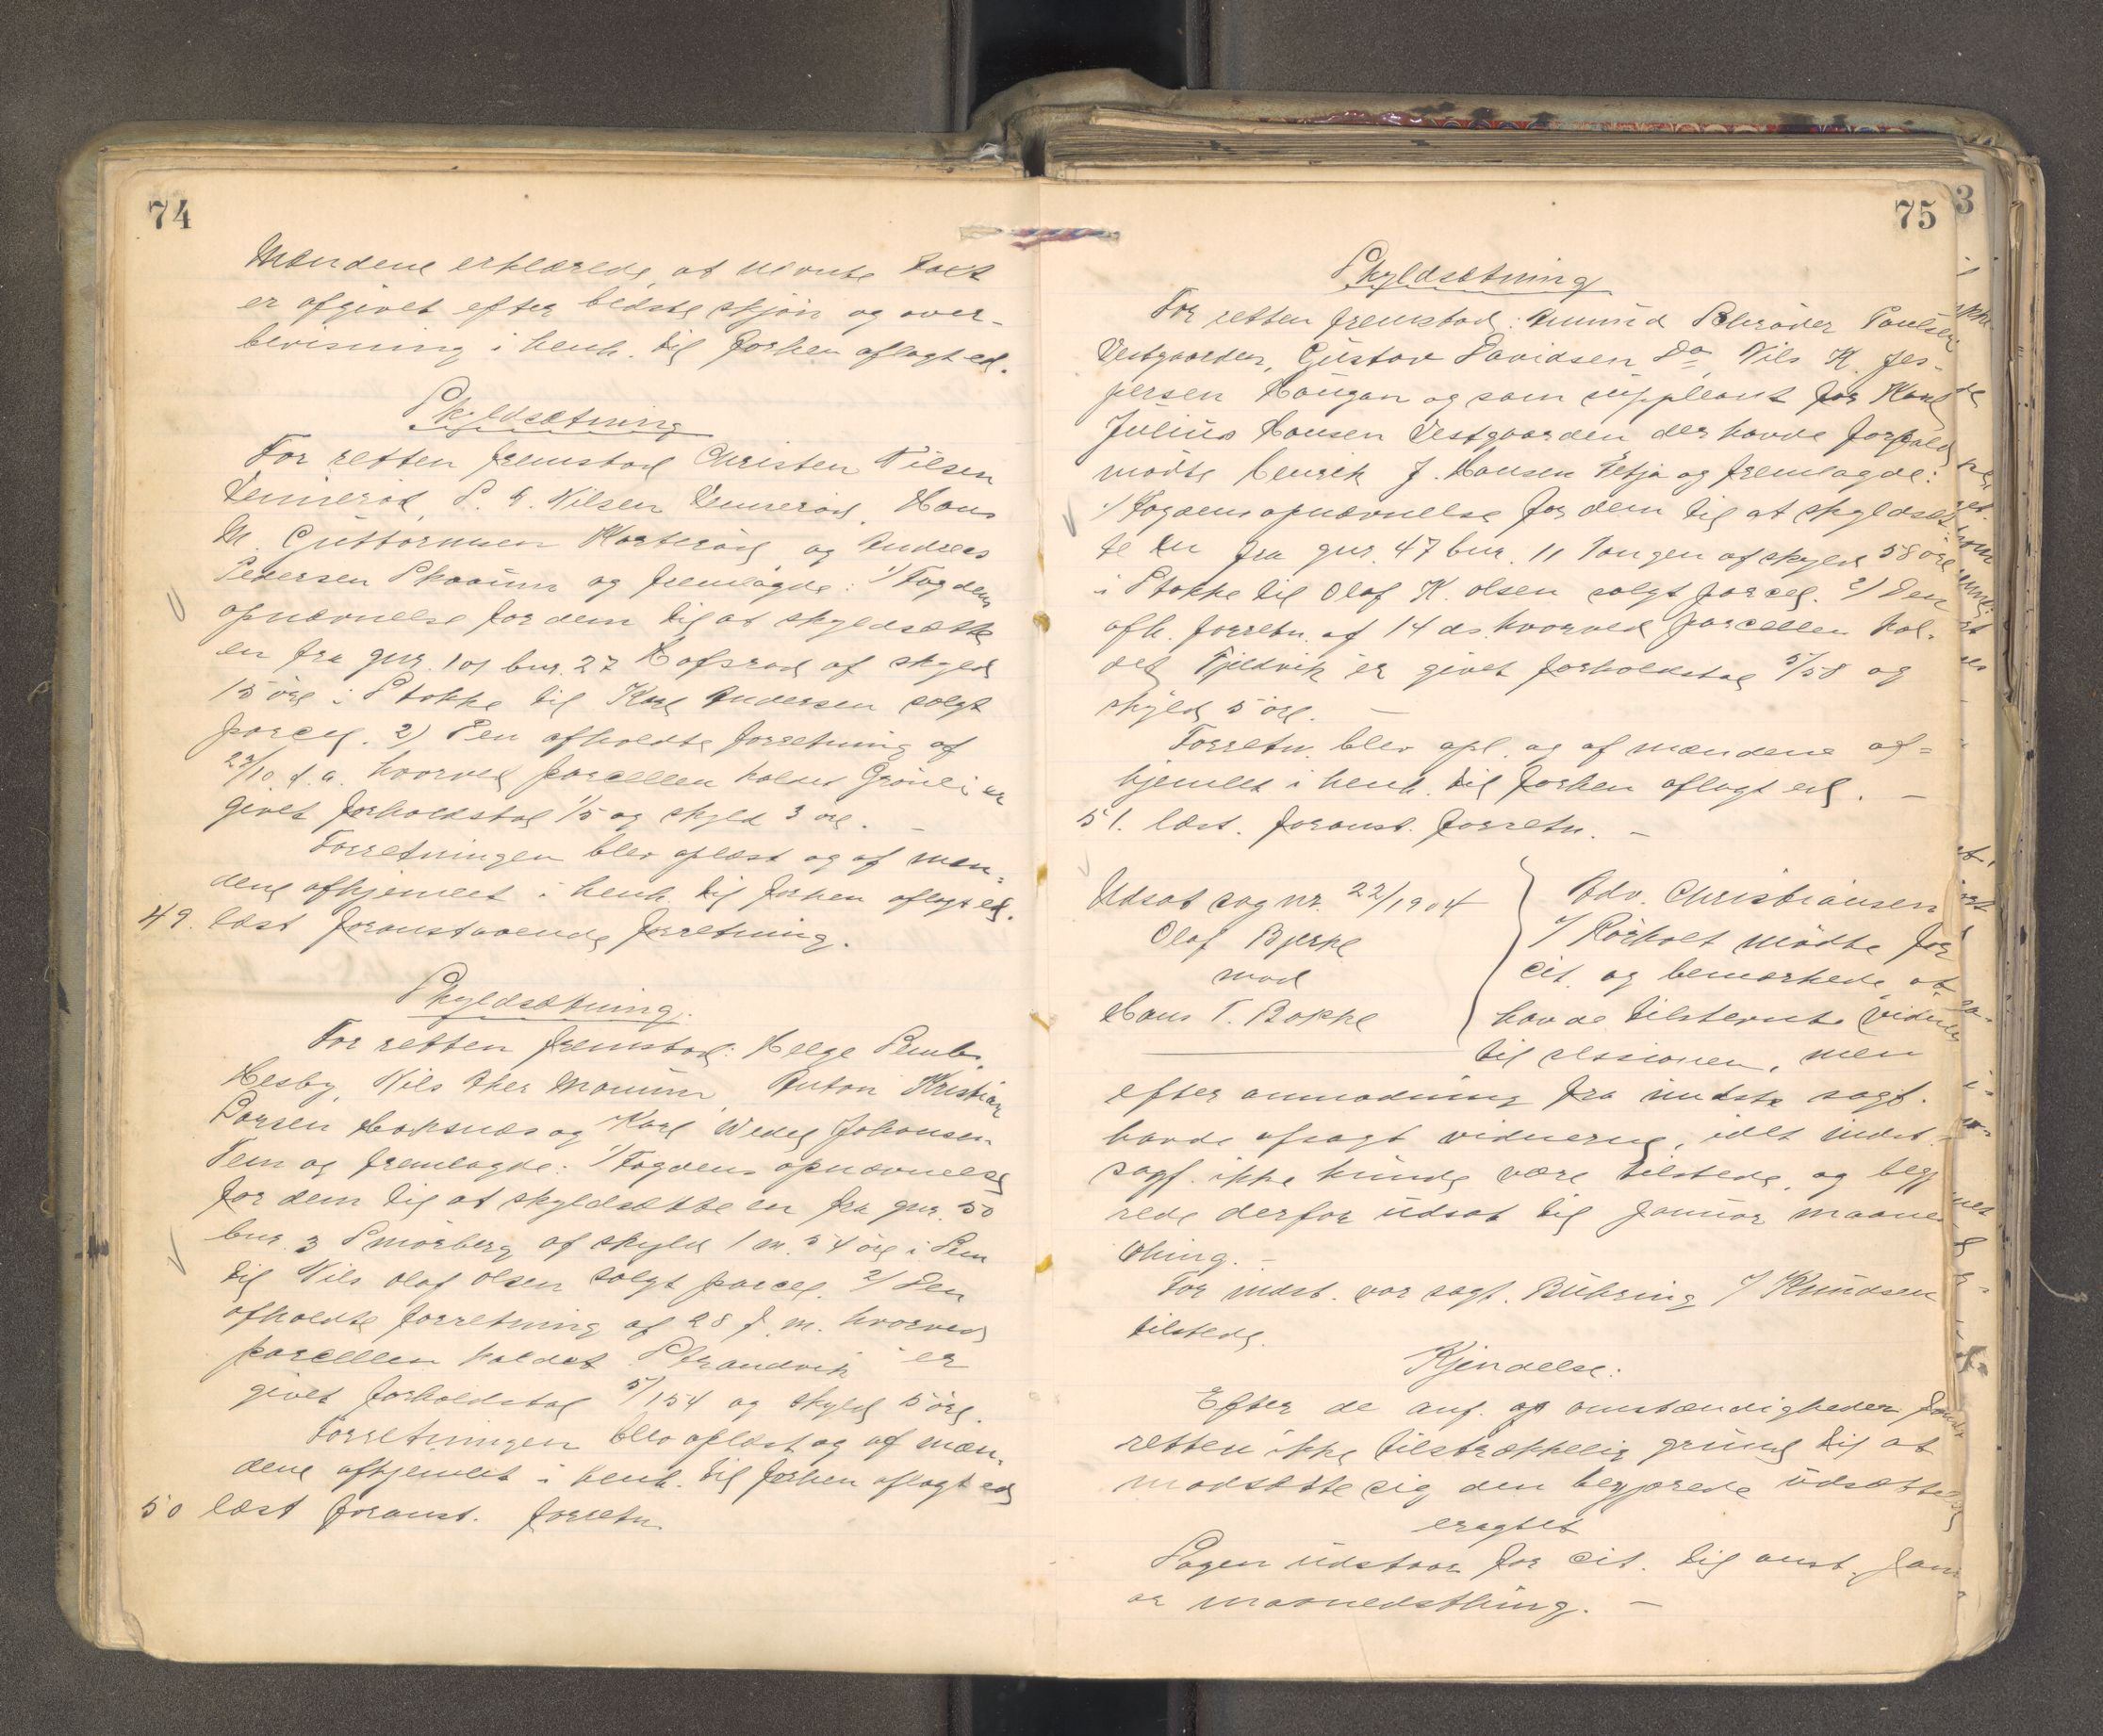 74
Mændene erklærede, at nævnte takt
er afgivet efter bedste skjøn og over-
bevisning i henh. til forhen aflagt ed.
Skyldsætning
For retten fremstod Christen Nilsen
Vennerød, P. E. Nilsen Vennerød, Hans
M. Guttormsen Korterød og Andreas
Pedersen Skaaum og fremlagde: 1/ Fogdens
opnævnelse for dem til at skyldsætte
en fra gnr. 101 bnr. 27 Hafsrød af skyld
15 øre i Stokke til Karl Andersen solgt
parcel. 2) Den afholdte forretning af
29/10 d.a. hvorved parcellen kaldet Grønli er
givet forholdstal 1/5 og skyld 3 øre. –
Forretningen blev oplæst og af mæn-
dene afhjemlet i henh. til forhen aflagt ed.
49. læst foranstaaende forretning.
Skyldsætning.
For retten fremstod: Helge Semb,
Hesby, Nils Aker Maaum, Anton Kristian
Larsen Hoksnæs og Karl Wedel Johansen
Sem og fremlagde: 1/ Fogdens opnævnelse
for dem til at skyldsætte en fra gnr. 50
bnr. 3 Smørberg af skyld 1 m. 54 øre i Sem
til Nils Olaf Olsen solgt parcel. 2/ Den
afholdte forretning af 28 f. m. hvorved
parcellen kaldet "Strandvik" er
givet forholdstal 5/154 og skyld 5 øre.
Forretningen blev oplæst og af mæn-
dene afhjemlet i henh. til forhen aflagt ed
50 læst foranst. forretn.
75
3
Skyldsætning
For retten fremstod: Amund Schrøder Paulsen
Vestgaarden, Gustav Davidsen Do, Nils K. Jes-
persen Haugan og som suppleant for Karl
Julius Hansen Vestgaarden der havde forfald
mødte Henrik J. Hansen Tetja og fremlagde:
1/ Fogdens opnævnelse for dem til at skyldsæt
te en fra gnr. 47 bnr. 11 Tangen af skyld 58 øre
i Stokke til Olaf K. Olsen solgt parcel. 2/ Den
afh. forretn. af 14 ds. hvorved parcellen kal-
det Fjeldvik er givet forholdstal 5/58 og
skyld 5 øre. –
Forretn. blev opl. og af mændene af=
hjemlet i henh. til forhen aflagt ed. –
51. læst. foranst. forretn. –
Udsat sag nr. 22/1904
Olaf Bjerke
mod
Hans T. Bakke
Adv. Christiansen
v/ Rørholt mødte for
cit. og bemærkede at
havde tilstevnte vidner
til sessionen, men
efter anmodning fra indste sagf.
havde afsagt vidnerne, idet indst.
sagf. ikke kunde være tilstede, og begj
rede derfor udsat til januar maane
thing. –
For indst. var sagf. Bühring v/ Knudsen
tilstede.
Kjendelse:
Efter de anf. af omstændigheder fandt
retten ikke tilstrækkelig grund til at
modsætte sig den begjærede udsættelse
eragtet
Sagen udstaar for cit. til anst. janu
ar maanedsthing. –